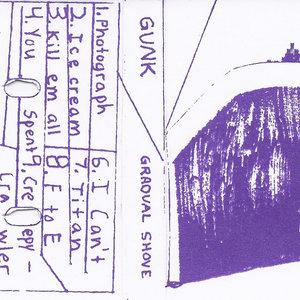 GUNK
GRADUAL SHOVE
1. Photograph
2. Ice cream
3. Kill em all
4. You Spent
6. I Can't
7. Titan
8. F to E
9. Creepy-
Crawler